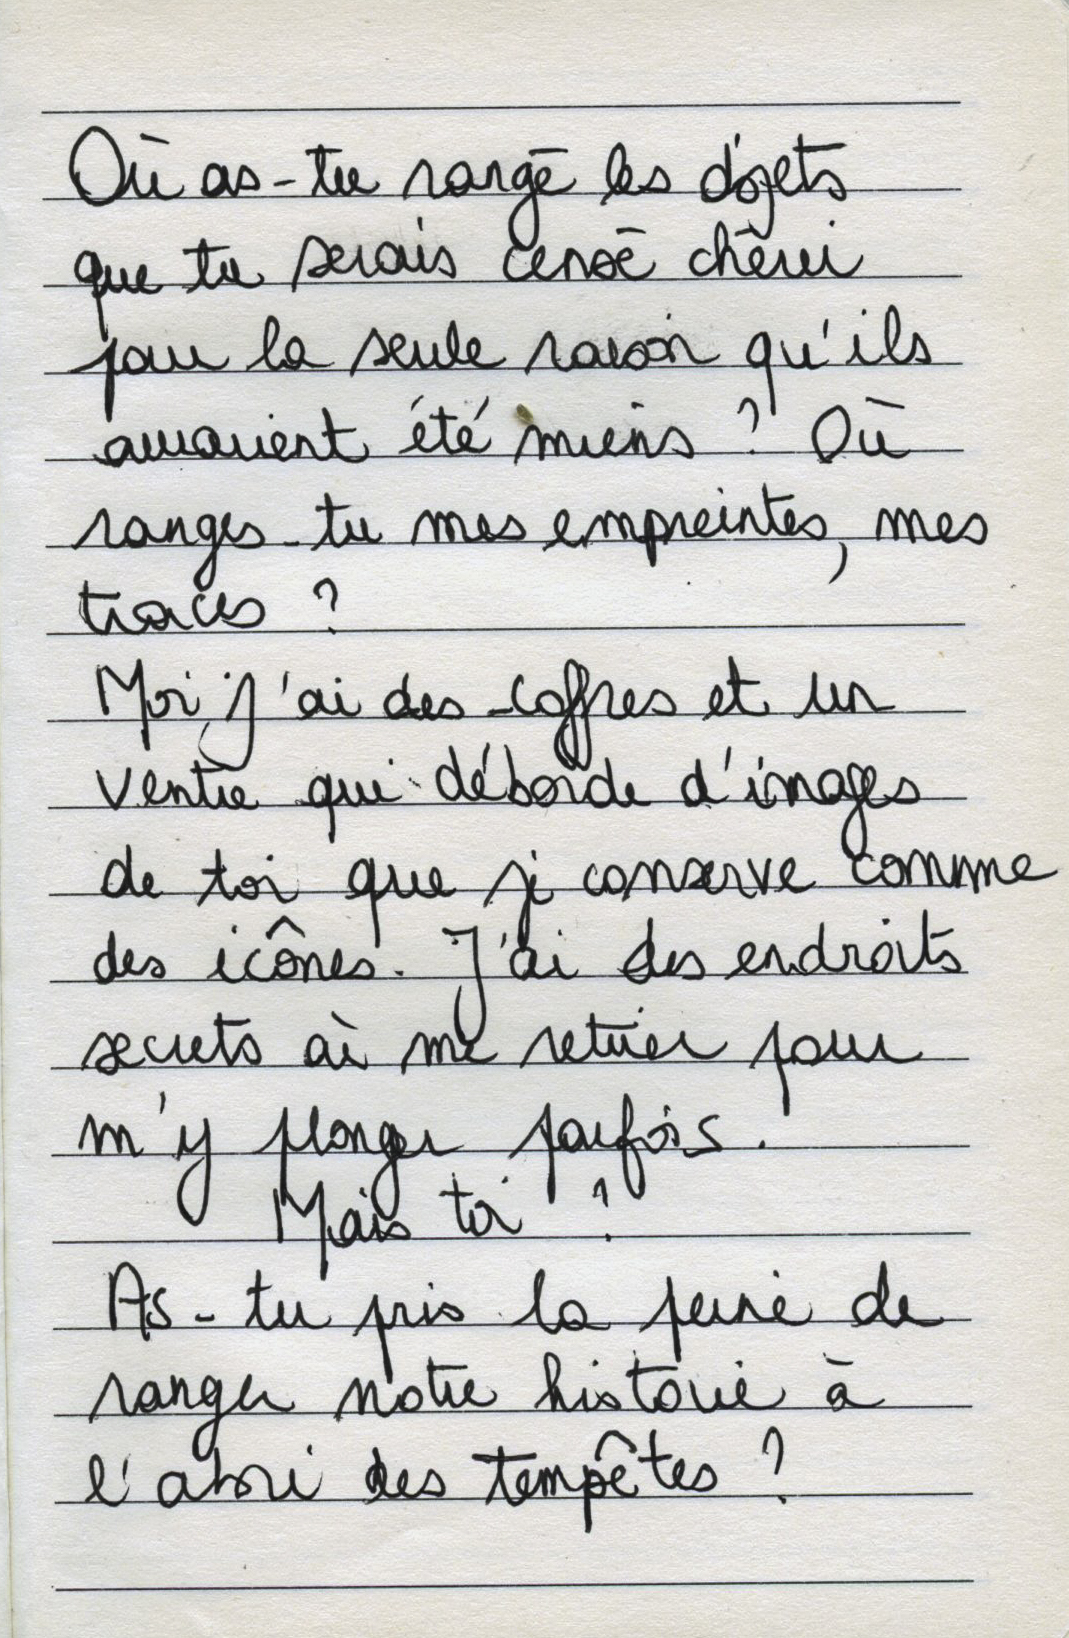 Où as-tu rangé les objets
que tu serais censé chérir
pour la seule raison qu'ils
auraient été miens ? Où
ranges-tu mes empreintes, mes
traces ?
Moi, j'ai des coffres et un
ventre qui déborde d'images
de toi que je conserve comme
des icônes. J'ai des endroits
secrets où me retirer pour
m'y plonger parfois.
Mais toi ?
As-tu pris la peine de
ranger notre histoire à
l'abri des tempêtes ?